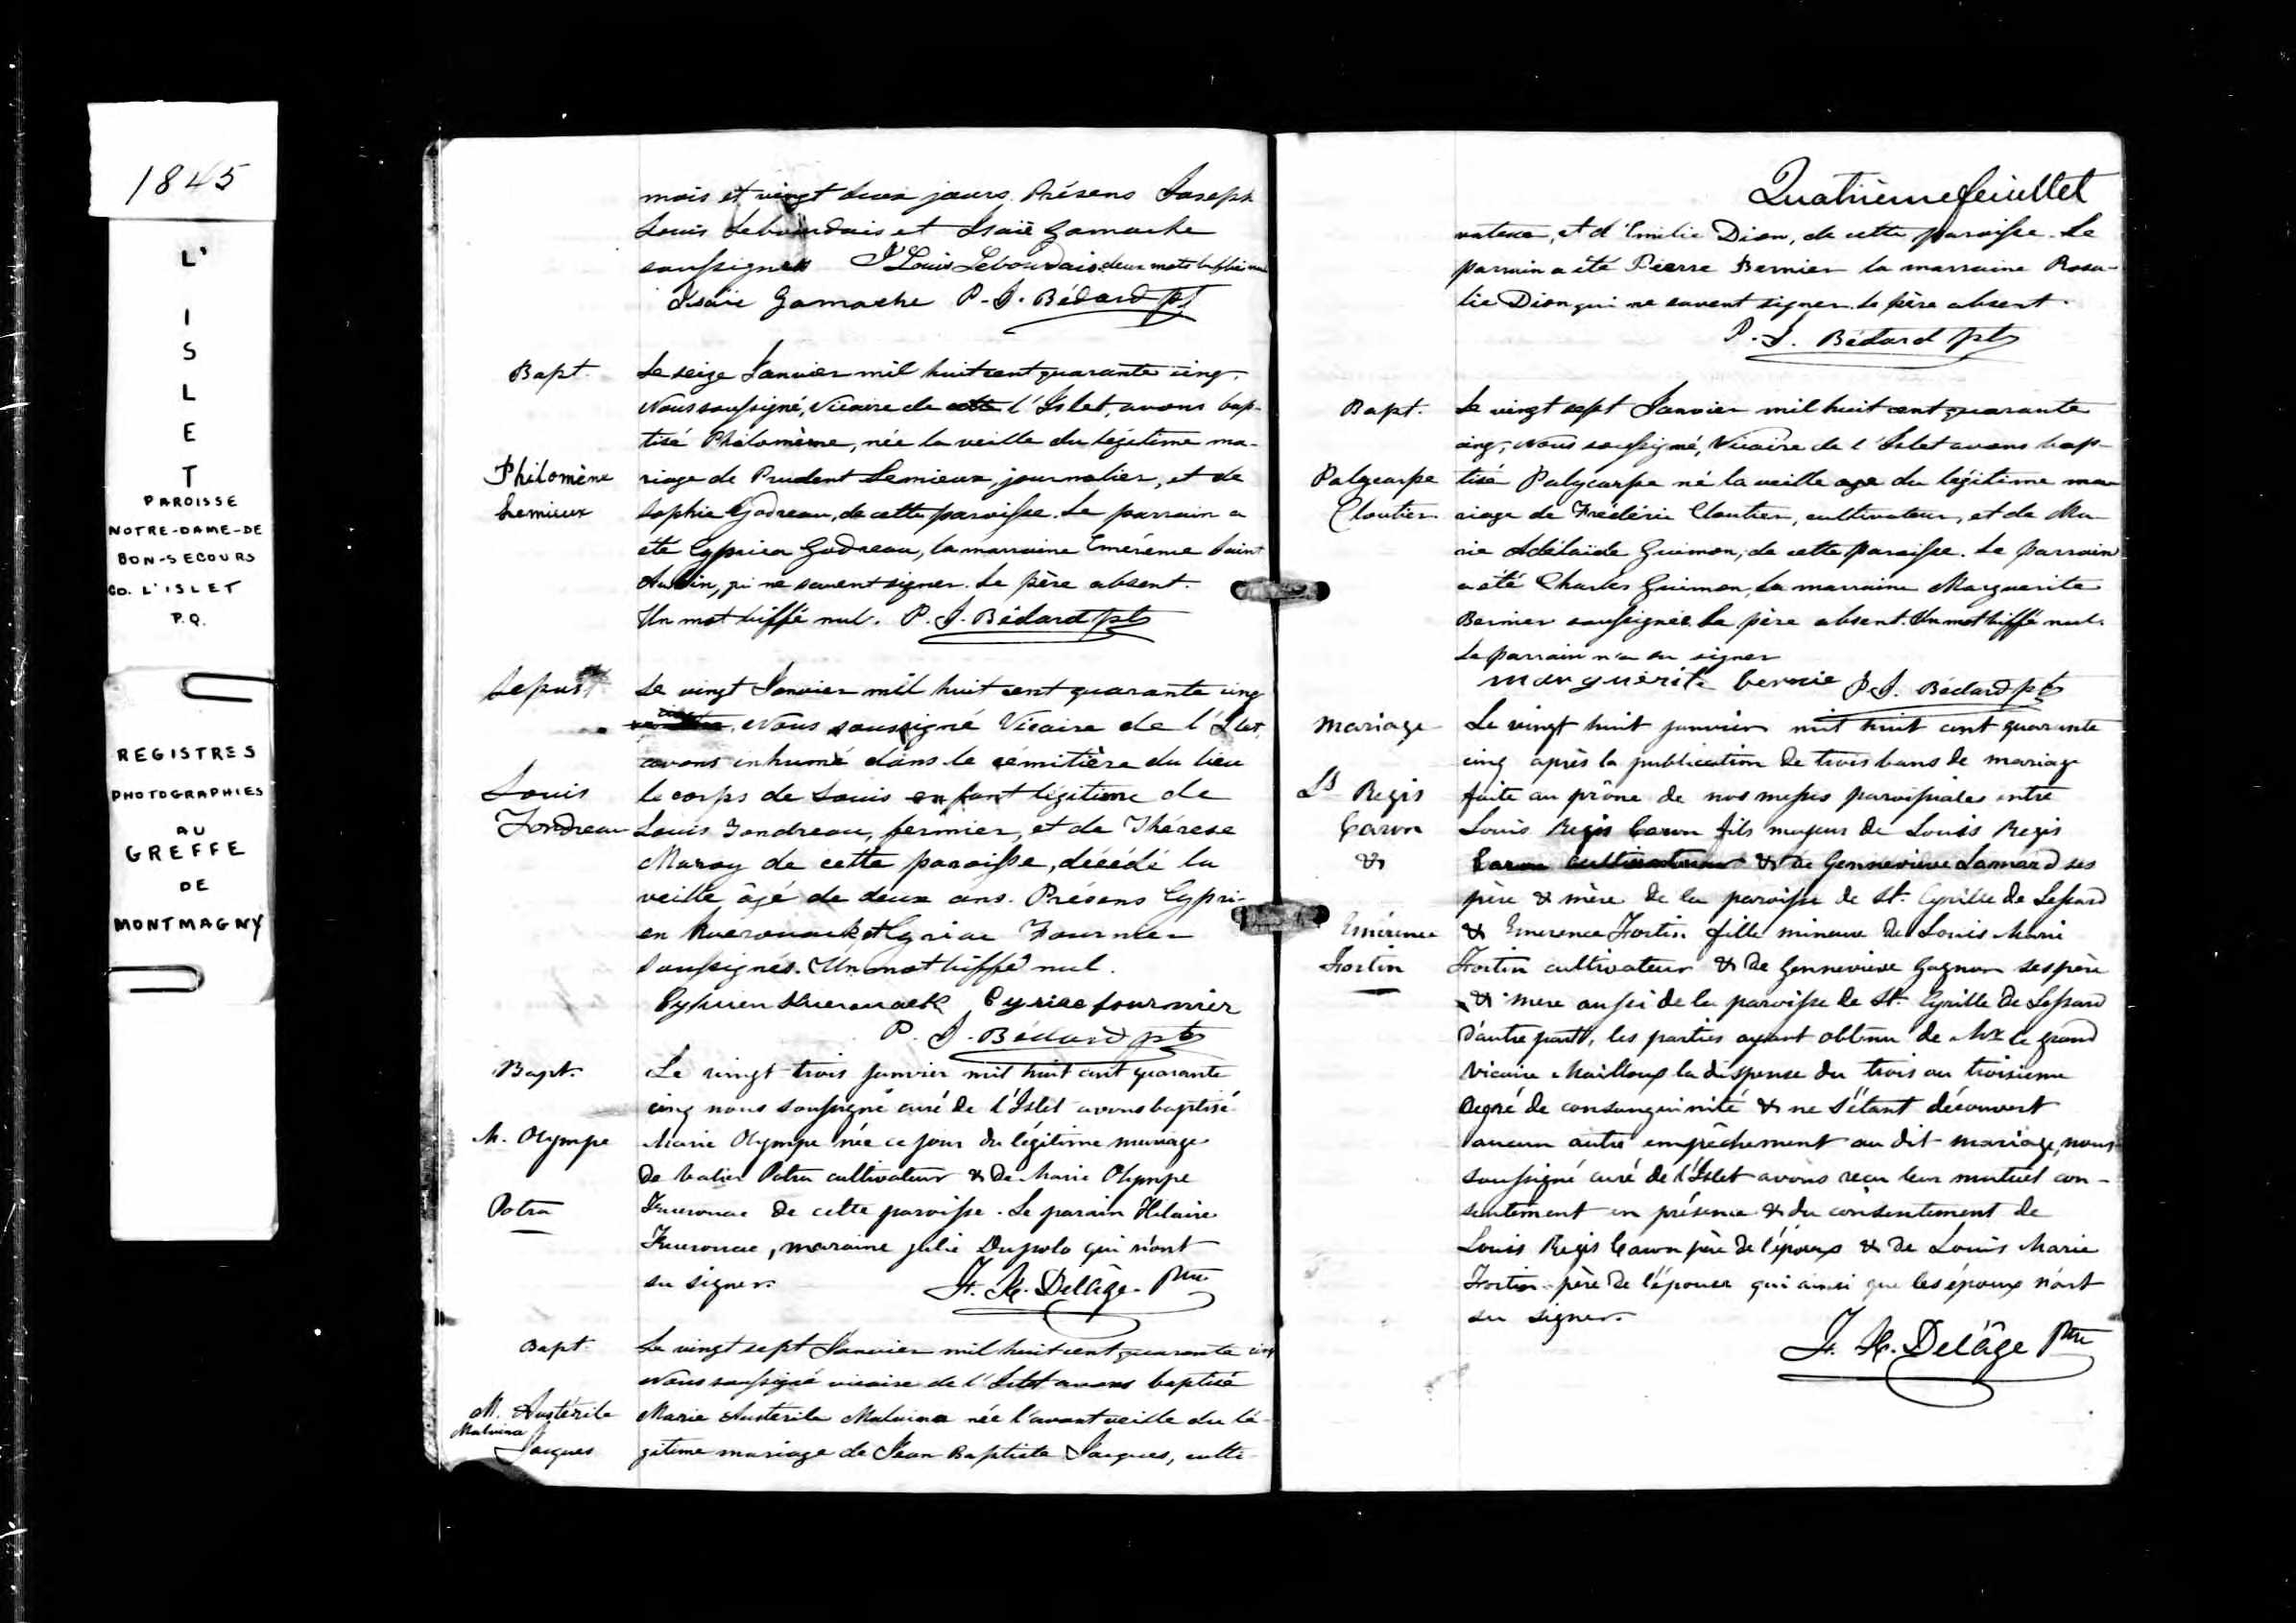 1845
L'
I
S
L
E
T
PAROISSE
NOTRE-DAME-DE
BON-SECOURS
CO. L'ISLET
P.Q.
REGISTRES
PHOTOGRAPHIES
AU
GREFFE
DE
MONTMAGNY
mois et vingt deux jours. Présens Joseph
Louis Lebourdais et Isaïe Gamache
soussignés J Louis Lebourdais deux mots biffés nuls
Isaïe Gamache P. J. Bédard pt
Bapt. Le seize Janvier mil huit cent quarante cinq,
Nous soussigné, Vicaire de l'Islet, avons bap-
tisé Philomène, née la veille du légitime ma-
Philomène riage de Prudent Lemieux, journalier, et de
Lemieux Sophie Godreau, de cette paroisse. Le parrain a
été Cyprien Godreau, la marraine Emérence Saint
Aubin, qui ne savent signer. Le père absent.
Un mot biffé nul. P. J. Bédard pt
Sepult. Le vingt Janvier mil huit cent quarante cinq
Nous soussigné Vicaire de l'Islet,
avons inhumé dans le cémitière du lieu
Louis le corps de Louis enfant légitime de
Fondreau Louis Gondreau, fermier, et de Thérèse
de cette paroisse, décédé la
veille âgé de deux ans. Présens Cypri-
en Kuerouack, et Cyriac Fournier
soussignés. Un mot biffé nul.
Cyprien Kuerouack Cyriac fournier
P. J. Bédard pt
Bapt. Le vingt-trois janvier mil huit cent quarante
cinq nous soussigné curé de l'Islet avons baptisé
M. Olympe Marie Olympe née ce jour du légitime mariage
de Valier Potra cultivateur & de Marie Olympe
Potra Kuerouac de cette paroisse. Le parain Hilaire
Kuerouac, maraine Julie Dupolo qui n'ont
su signer. F. X. Delâge Ptre
Bapt. Le vingt sept Janvier mil huit cent quarante cinq
Nous soussigné vicaire de l'Islet avons baptisé
M. Austérile Marie Austérile Malvina née l'avant veille du lé-
Malvina
Jacques gitime mariage de Jean Baptiste Jacques, culti-
Quatrième feuillet
vateur, et d'Emilie Dion, de cette paroisse. Le
parrain a été Pierre Bernier la marraine Rosa-
lie Dion qui ne savent signer. Le père absent.
P. J. Bédard pt
Bapt. Le vingt sept Janvier mil huit cent quarante
cinq, Nous soussigné, Vicaire de l'Islet avons bap-
Polycarpe tisé Polycarpe né la veille du légitime ma-
Cloutier riage de Frédéric Cloutier, cultivateur, et de Ma-
rie Adélaïde Guimon, de cette paroisse. Le parrain
a été Charles Guimon, la marraine Marguerite
Bernier soussignée. Le père absent. Un mot biffé nul.
Le parrain n'a su signer
marguerite bernie P. J. Bédard pt
Mariage Le vingt huit janvier mil huit cent quarante
cinq après la publication de trois bans de mariage
Ls Regis faite au prône de nos messes paroissiales entre
Caron Louis Regis Caron fils majeur de Louis Regis
& Caron cultivateur & de Genneviève Lamard ses
père & mère de la paroisse de St. Cyrille de Lessard
Emérence & Emerence Fortin fille mineure de Louis Marie
Fortin Fortin cultivateur & de Genneviève Gagnon ses père
& mere aussi de la paroisse de St. Cyrille de Lessard
d'autre part, les parties ayant obtenu de Mr le grand
Vicaire Mailloux la dispense du trois au troisieme
degré de consanguinité & ne s'étant découvert
aucun autre empêchement au dit mariage, nous
soussigné curé de l'Islet avons reçu leur mutuel con-
sentement en présence & du consentement de
Louis Regis Caron père de l'époux & de Louis Marie
Fortin père de l'épouse qui ainsi que les époux n'ont
su signer.
F. X. Delâge Ptre